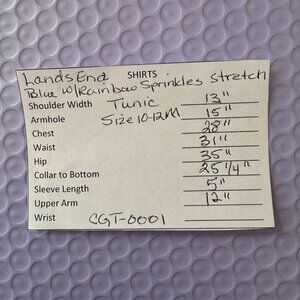 Lands End SHIRTS
Blue w/Rainbow Sprinkles Stretch
Shoulder Width Tunic 13"
Armhole Size 10-12M 15"
Chest 28"
Waist 31"
Hip 35"
Collar to Bottom 25 1/4"
Sleeve Length 5"
Upper Arm 12"
Wrist CGT-0001